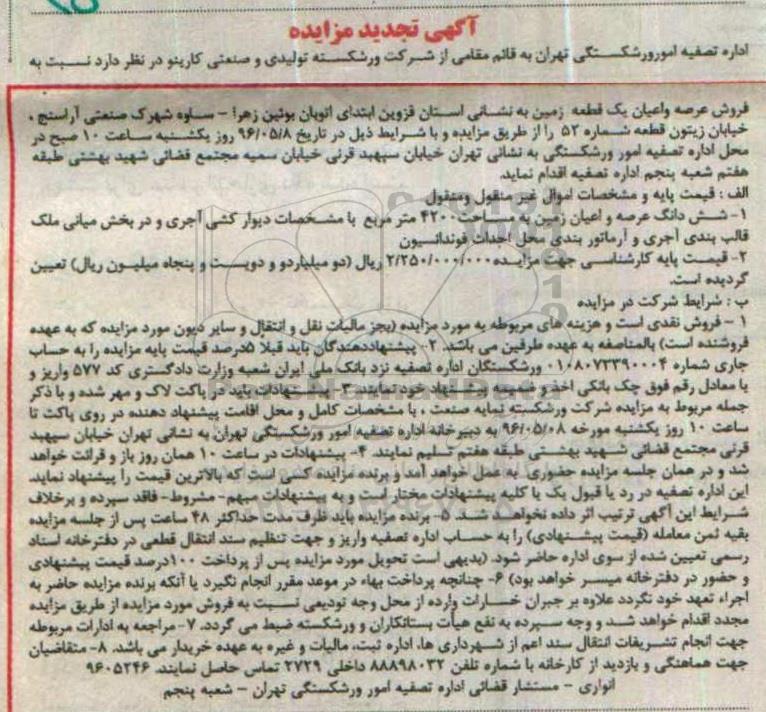 آگهی تجدید مزایده
اداره تصفیه امورورشکستگی تهران به قائم مقامی از شرکت ورشکسته تولیدی و صنعتی کارینو در نظر دارد نسبت به
فروش عرصه واعیان یک قطعه زمین به نشانی استان قزوین ابتدای اتوبان بوئین زهرا - ساوه شهرک صنعتی آراسنج ،
خیابان زیتون قطعه شماره ۵۲ را از طریق مزایده و با شرایط ذیل در تاریخ ۹۶/۰۵/۸ روز یکشنبه ساعت ۱۰ صبح در
محل اداره تصفیه امور ورشکستگی به نشانی تهران خیابان سپهبد قرنی خیابان سمیه مجتمع قضائی شهید بهشتی طبقه
هفتم شعبه پنجم اداره تصفیه اقدام نماید.
الف : قیمت پایه و مشخصات اموال غیر منقول ومنقول
۱- شش دانگ عرصه و اعیان زمین به مساحت ۴۲۰۰ متر مربع با مشخصات دیوار کشی آجری و در بخش میانی ملک
قالب بندی آجری و آرماتور بندی محل احداث فوندانسیون
۲- قیمت پایه کارشناسی جهت مزایده ۲/۲۵۰/۰۰۰/۰۰۰ ریال (دو میلیاردو و دویست و پنجاه میلیون ریال) تعیین
گردیده است.
ب : شرایط شرکت در مزایده
۱ - فروش نقدی است و هزینه های مربوطه به مورد مزایده (بجز مالیات نقل و انتقال و سایر دیون مورد مزایده که به عهده
فروشنده است) بالمناصفه به عهده طرفین می باشد. ۲- پیشنهاددهندگان باید قبلا ۵درصد قیمت پایه مزایده را به حساب
جاری شماره ۰۱۰۸۰۷۳۳۹۰۰۰۴ ورشکستگان اداره تصفیه نزد بانک ملی ایران شعبه وزارت دادگستری کد ۵۷۷ واریز و
یا معادل رقم فوق چک بانکی اخذ و ضمیمه پیشنهاد خود نمایند. ۳- پیشنهادات باید در پاکت لاک و مهر شده و با ذکر
جمله مربوط به مزایده شرکت ورشکسته نمایه صنعت ، با مشخصات کامل و محل اقامت پیشنهاد دهنده در روی پاکت تا
ساعت ۱۰ روز یکشنبه مورخه ۹۶/۰۵/۰۸ به دبیرخانه اداره تصفیه امور ورشکستگی تهران به نشانی تهران خیابان سپهبد
قرنی مجتمع قضائی شهید بهشتی طبقه هفتم تسلیم نمایند. ۴- پیشنهادات در ساعت ۱۰ همان روز باز و قرائت خواهد
شد و در همان جلسه مزایده حضوری به عمل خواهد آمد و برنده مزایده کسی است که بالاترین قیمت را پیشنهاد نماید.
این اداره تصفیه در رد یا قبول یک یا کلیه پیشنهادات مختار است و به پیشنهادات مبهم- مشروط- فاقد سپرده و برخلاف
شرایط این آگهی ترتیب اثر داده نخواهد شد. ۵- برنده مزایده باید ظرف مدت حداکثر ۴۸ ساعت پس از جلسه مزایده
بقیه ثمن معامله (قیمت پیشنهادی) را به حساب اداره تصفیه واریز و جهت تنظیم سند انتقال قطعی در دفترخانه اسناد
رسمی تعیین شده از سوی اداره حاضر شود. (بدیهی است تحویل مورد مزایده پس از پرداخت ۱۰۰درصد قیمت پیشنهادی
و حضور در دفترخانه میسر خواهد بود) ۶- چنانچه پرداخت بهاء در موعد مقرر انجام نگیرد یا آنکه برنده مزایده حاضر به
اجراء تعهد خود نگردد علاوه بر جبران خسارات وارده از محل وجه تودیعی نسبت به فروش مورد مزایده از طریق مزایده
مجدد اقدام خواهد شد و وجه سپرده به نفع هیأت بستانکاران و ورشکسته ضبط می گردد. ۷-مراجعه به ادارات مربوطه
جهت انجام تشریفات انتقال سند اعم از شهرداری ها، اداره ثبت، مالیات و غیره به عهده خریدار می باشد. ۸- متقاضیان
جهت هماهنگی و بازدید از کارخانه با شماره تلفن ۸۸۸۹۸۰۳۲ داخلی ۲۷۲۹ تماس حاصل نمایند. ۹۶۰۵۲۴۶
انواری - مستشار قضائی اداره تصفیه امور ورشکستگی تهران - شعبه پنجم